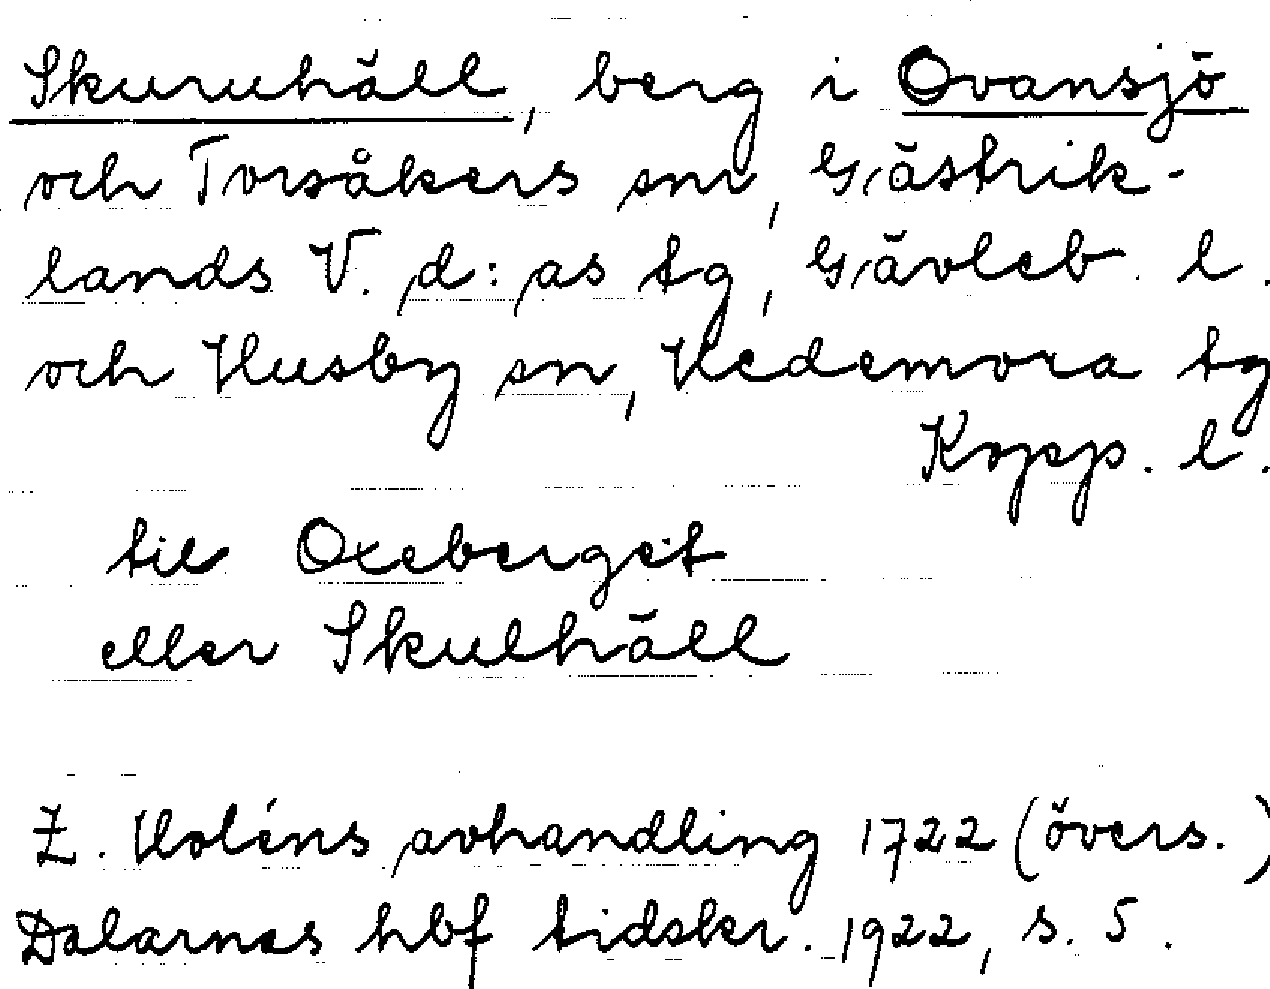 Skuruhäll, berg i Ovansjö
och Torsåkers snr, Gästrik-
lands V. d:as tg, Gävleb. l.
och Husby sn, Hedemora tg
Kopp. l.
till Oxeberget
eller Skulhäll
Z. Holéns avhandling 1722 (övers.)
Dalarnas hbf tidskr. 1922, s. 5.